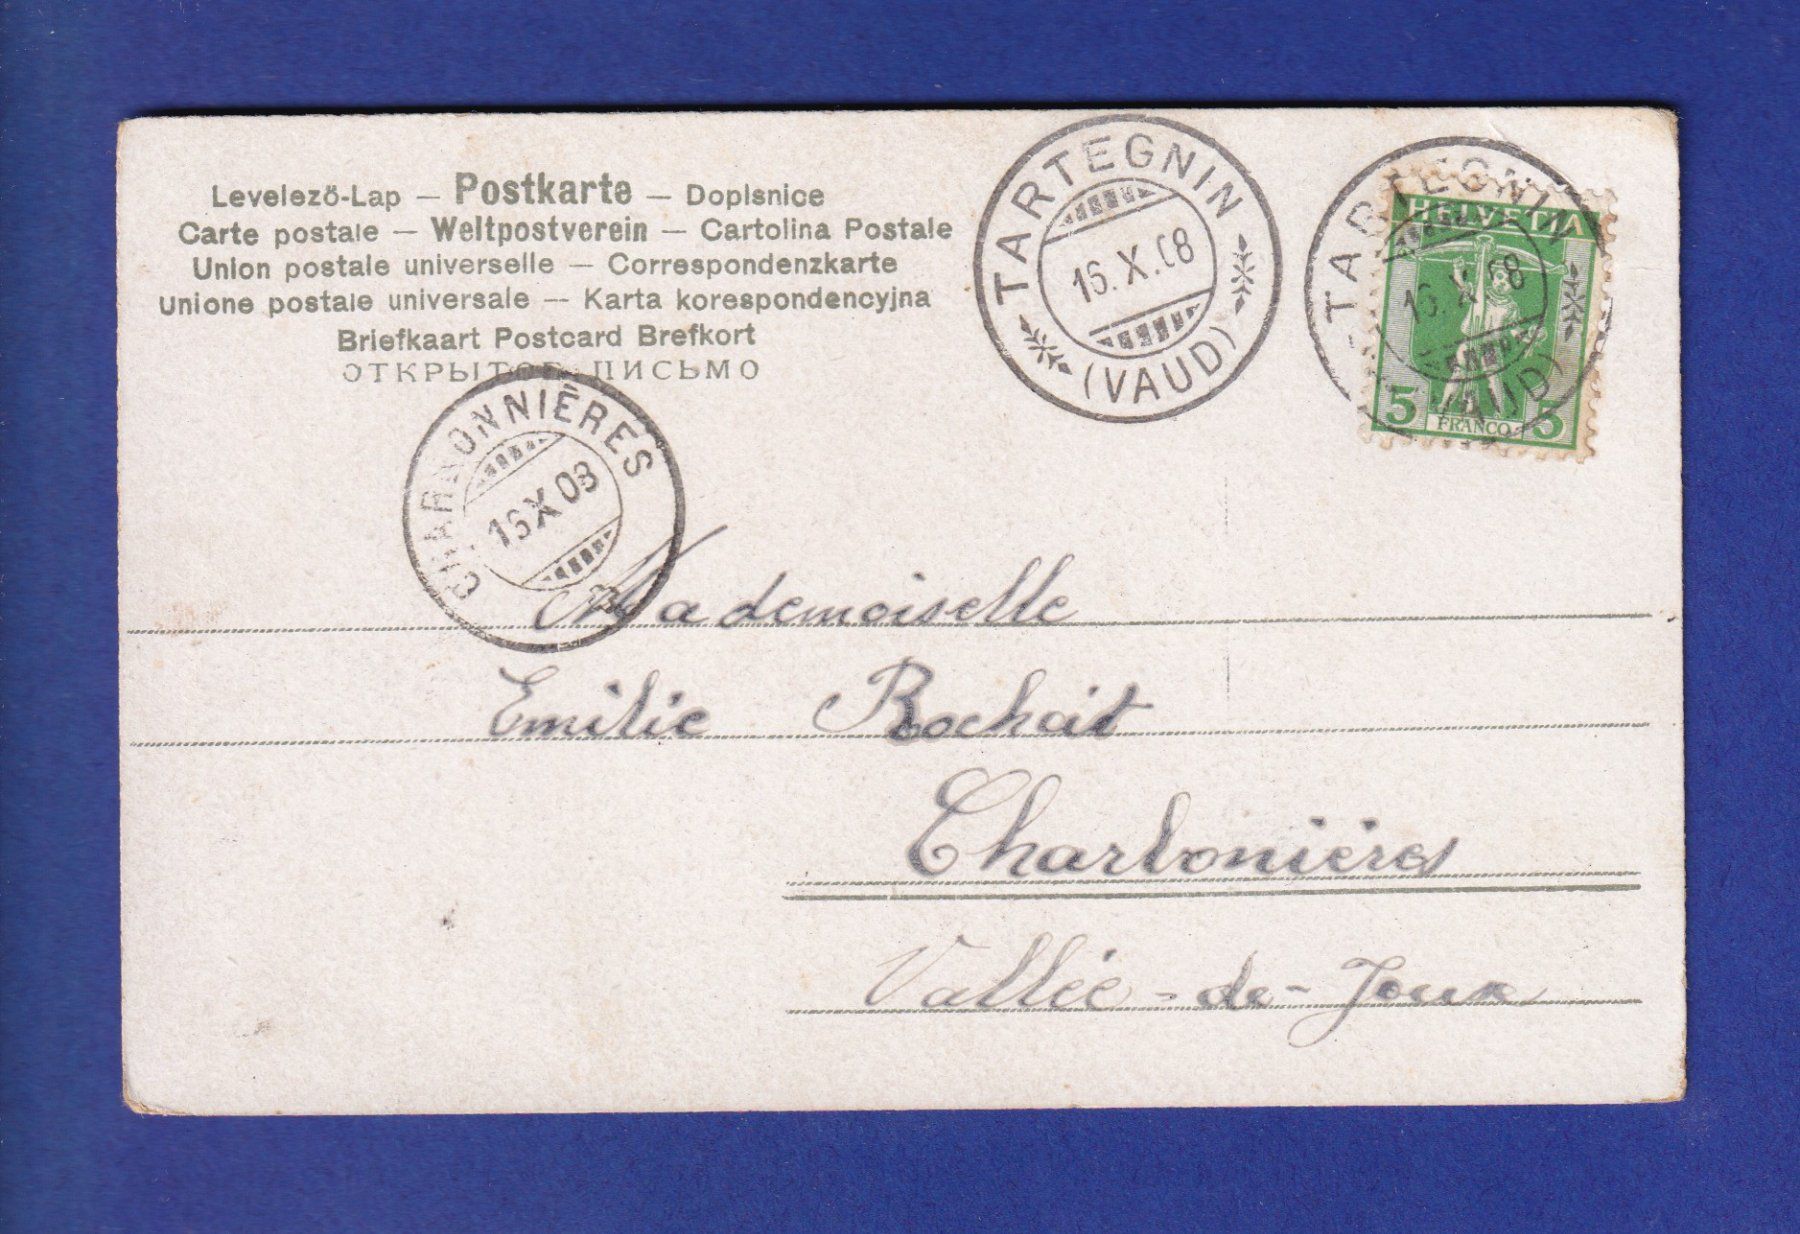 Levelező-Lap — Postkarte — Doplsnice
Carte postale — Weltpostverein — Cartolina Postale
Union postale universelle — Correspondenzkarte
Unione postale universale — Karta korespondencyjna
Briefkaart Postcard Brefkort
ОТКРЫТОЕ ПИСЬМО
TARTEGNIN
16.X.08
(VAUD)
TARTEGNIN
16.X.08
(VAUD)
HELVETIA
5 FRANCO 5
CHARBONNIÈRES
16 X 08
Mademoiselle
Emilie Rochait
Charbonières
Vallée-de-Joux